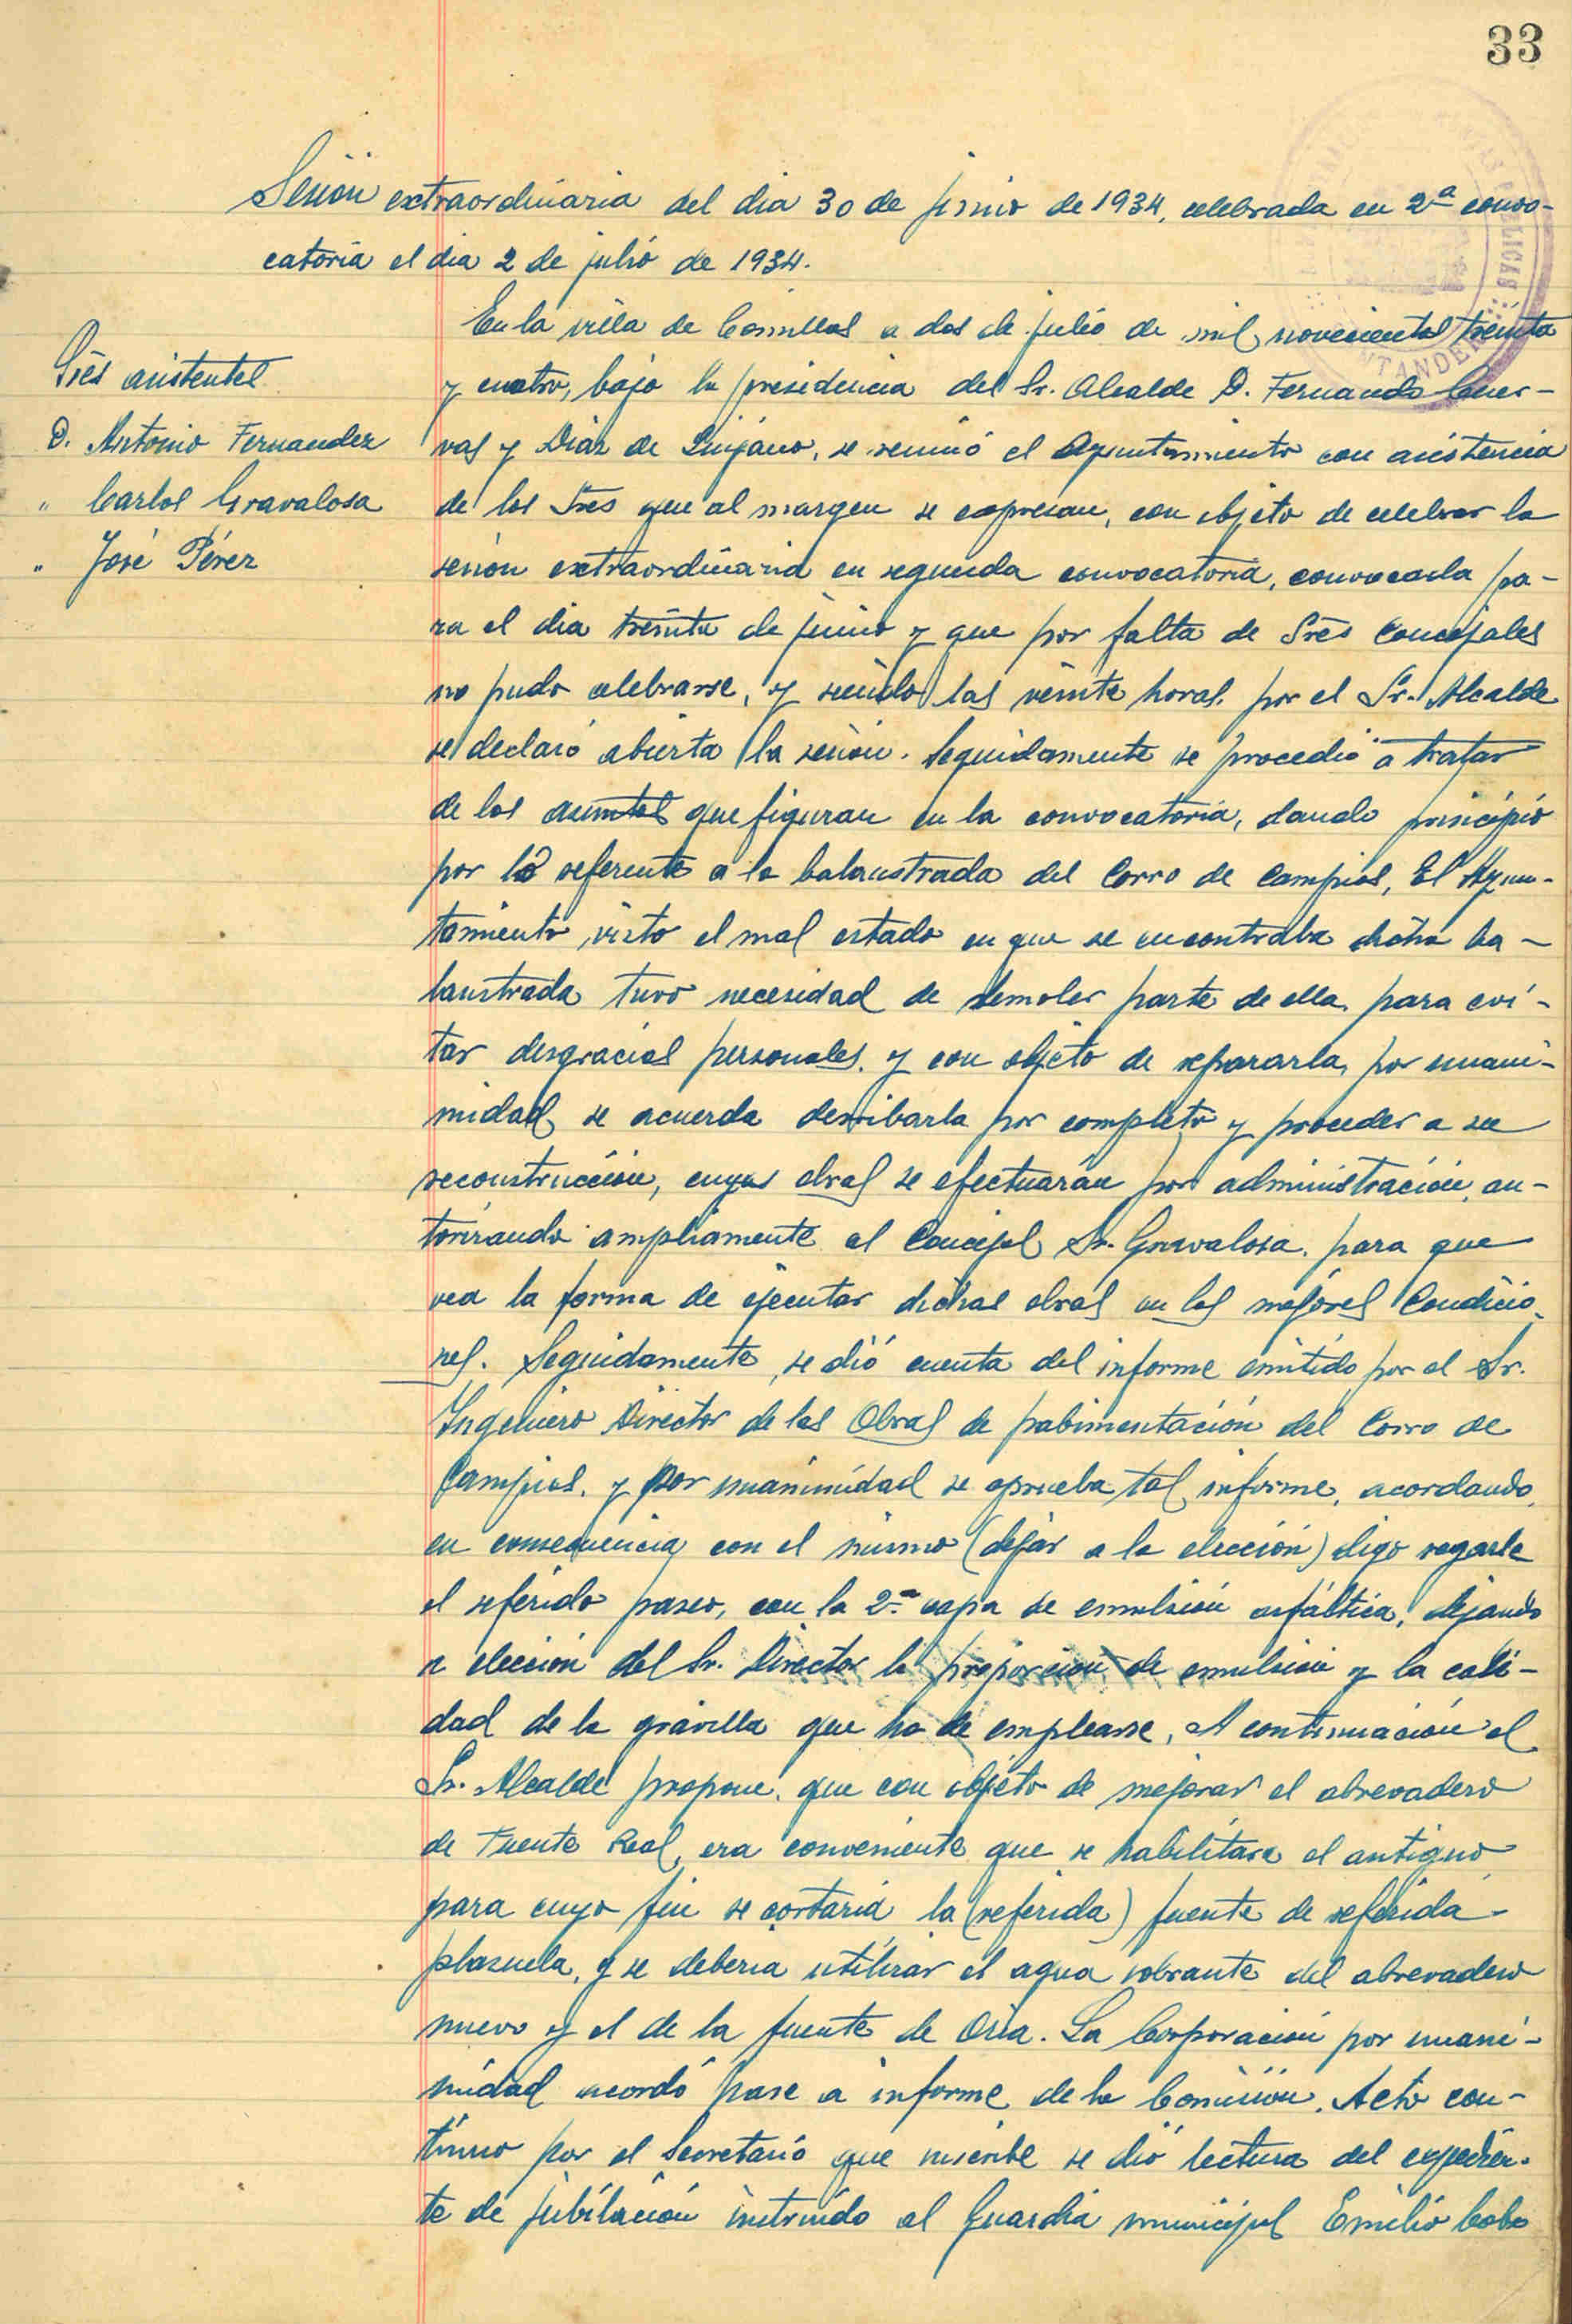 33
Sesión extraordinaria del dia 30 de junio de 1934, celebrada en 2ª convo-
catoria el dia 2 de julio de 1934.
Sres asistentes
D. Antonio Fernandez
" Carlos Gravalosa
" José Pérez
En la villa de Comillas a dos de julio de mil novecientos treinta
y cuatro, bajo la presidencia del Sr. Alcalde D. Fernando Cuer-
vas y Diaz de Quijano, se reunió el Ayuntamiento con asistencia
de los Sres que al margen se expresan, con objeto de celebrar la
sesion extraordinaria en segunda convocatoria, convocada pa-
ra el dia treinta de junio y que por falta de Sres Concejales
no pudo celebrarse, y siendo las veinte horas, por el Sr. Alcalde
se declaró abierta la sesión. Seguidamente se procedió a tratar
de los asuntos que figuran en la convocatoria, dando principio
por lo referente a la balaustrada del Corro de Campios, El Ayun-
tamiento, visto el mal estado en que se encontraba dicha ba-
laustrada tuvo necesidad de demoler parte de ella, para evi-
tar desgracias personales, y con objeto de repararla, por unani-
midad, se acuerda derribarla por completo y proceder a su
reconstrucción, cuyas obras se efectuarán por administración, au-
torizando ampliamente al Concejal Sr. Gravalosa, para que
vea la forma de ejecutar dichas obras en las mejores Condicio-
nes. Seguidamente, se dió cuenta del informe emitido por el Sr.
Ingeniero Director de las Obras de pabimentación del Corro de
Campios, y por unanimidad se aprueba tal informe, acordando,
en consecuencia con el mismo (dejar a la elección) digo regarle
el referido paseo, con la 2.ª capa de emulsión asfáltica, dejando
a elección del Sr. Director la proporcion de emulsión y la cali-
dad de la gravilla que ha de emplearse, A continuación el
Sr. Alcalde propone, que con objeto de mejorar el abrevadero
de Fuente Real, era conveniente que se habilitara el antiguo
para cuyo fin se cortaria la (referida) fuente de referida
plazuela, y se deberia utilizar el agua sobrante del abrevadero
nuevo y el de la fuente de Oria. La Corporación por unani-
midad acordó pase a informe de la Comisión. Acto con-
tinuo por el Secretario que suscribe se dió lectura del expedien-
te de jubilación instruído al Guardia municipal Emilio Cobo